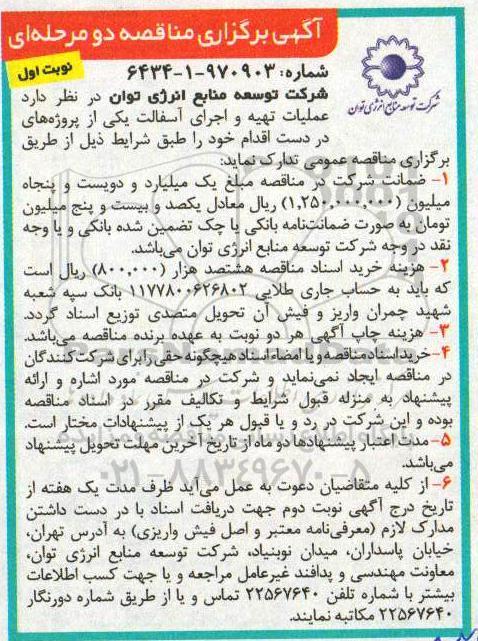 آگهی برگزاری مناقصه دو مرحله‌ای
نوبت اول
شماره: ۹۷۰۹۰۳-۱-۶۴۳۴
شرکت توسعه منابع انرژی توان
شرکت توسعه منابع انرژی توان در نظر دارد
عملیات تهیه و اجرای آسفالت یکی از پروژه‌های
در دست اقدام خود را طبق شرایط ذیل از طریق
برگزاری مناقصه عمومی تدارک نماید:
۱- ضمانت شرکت در مناقصه مبلغ یک میلیارد و دویست و پنجاه
میلیون (۱,۲۵۰,۰۰۰,۰۰۰) ریال معادل یکصد و بیست و پنج میلیون
تومان به صورت ضمانت‌نامه بانکی یا چک تضمین شده بانکی و یا وجه
نقد در وجه شرکت توسعه منابع انرژی توان می‌باشد.
۲- هزینه خرید اسناد مناقصه هشتصد هزار (۸۰۰,۰۰۰) ریال است
که باید به حساب جاری طلایی ۱۱۷۷۸۰۰۶۲۶۸۰۲ بانک سپه شعبه
شهید چمران واریز و فیش آن تحویل متصدی توزیع اسناد گردد.
۳- هزینه چاپ آگهی هر دو نوبت به عهده برنده مناقصه می‌باشد.
۴- خرید اسناد مناقصه و یا امضاء اسناد هیچگونه حقی را برای شرکت کنندگان
در مناقصه ایجاد نمی‌نماید و شرکت در مناقصه مورد اشاره و ارائه
پیشنهاد به منزله قبول شرایط و تکالیف مقرر در اسناد مناقصه
بوده و این شرکت در رد و یا قبول هر یک از پیشنهادات مختار است.
۵- مدت اعتبار پیشنهادها دو ماه از تاریخ آخرین مهلت تحویل پیشنهاد
می‌باشد.
۰۲۱-۸۸۳۴۹۶۷۰-۵
۶- از کلیه متقاضیان دعوت به عمل می‌آید ظرف مدت یک هفته از
تاریخ درج آگهی نوبت دوم جهت دریافت اسناد با در دست داشتن
مدارک لازم (معرفی‌نامه معتبر و اصل فیش واریزی) به آدرس تهران،
خیابان پاسداران، میدان نوبنیاد، شرکت توسعه منابع انرژی توان،
معاونت مهندسی و پدافند غیرعامل مراجعه و یا جهت کسب اطلاعات
بیشتر با شماره تلفن ۲۲۵۶۷۶۴۰ تماس و یا از طریق شماره دورنگار
۲۲۵۶۷۶۴۰ مکاتبه نمایند.